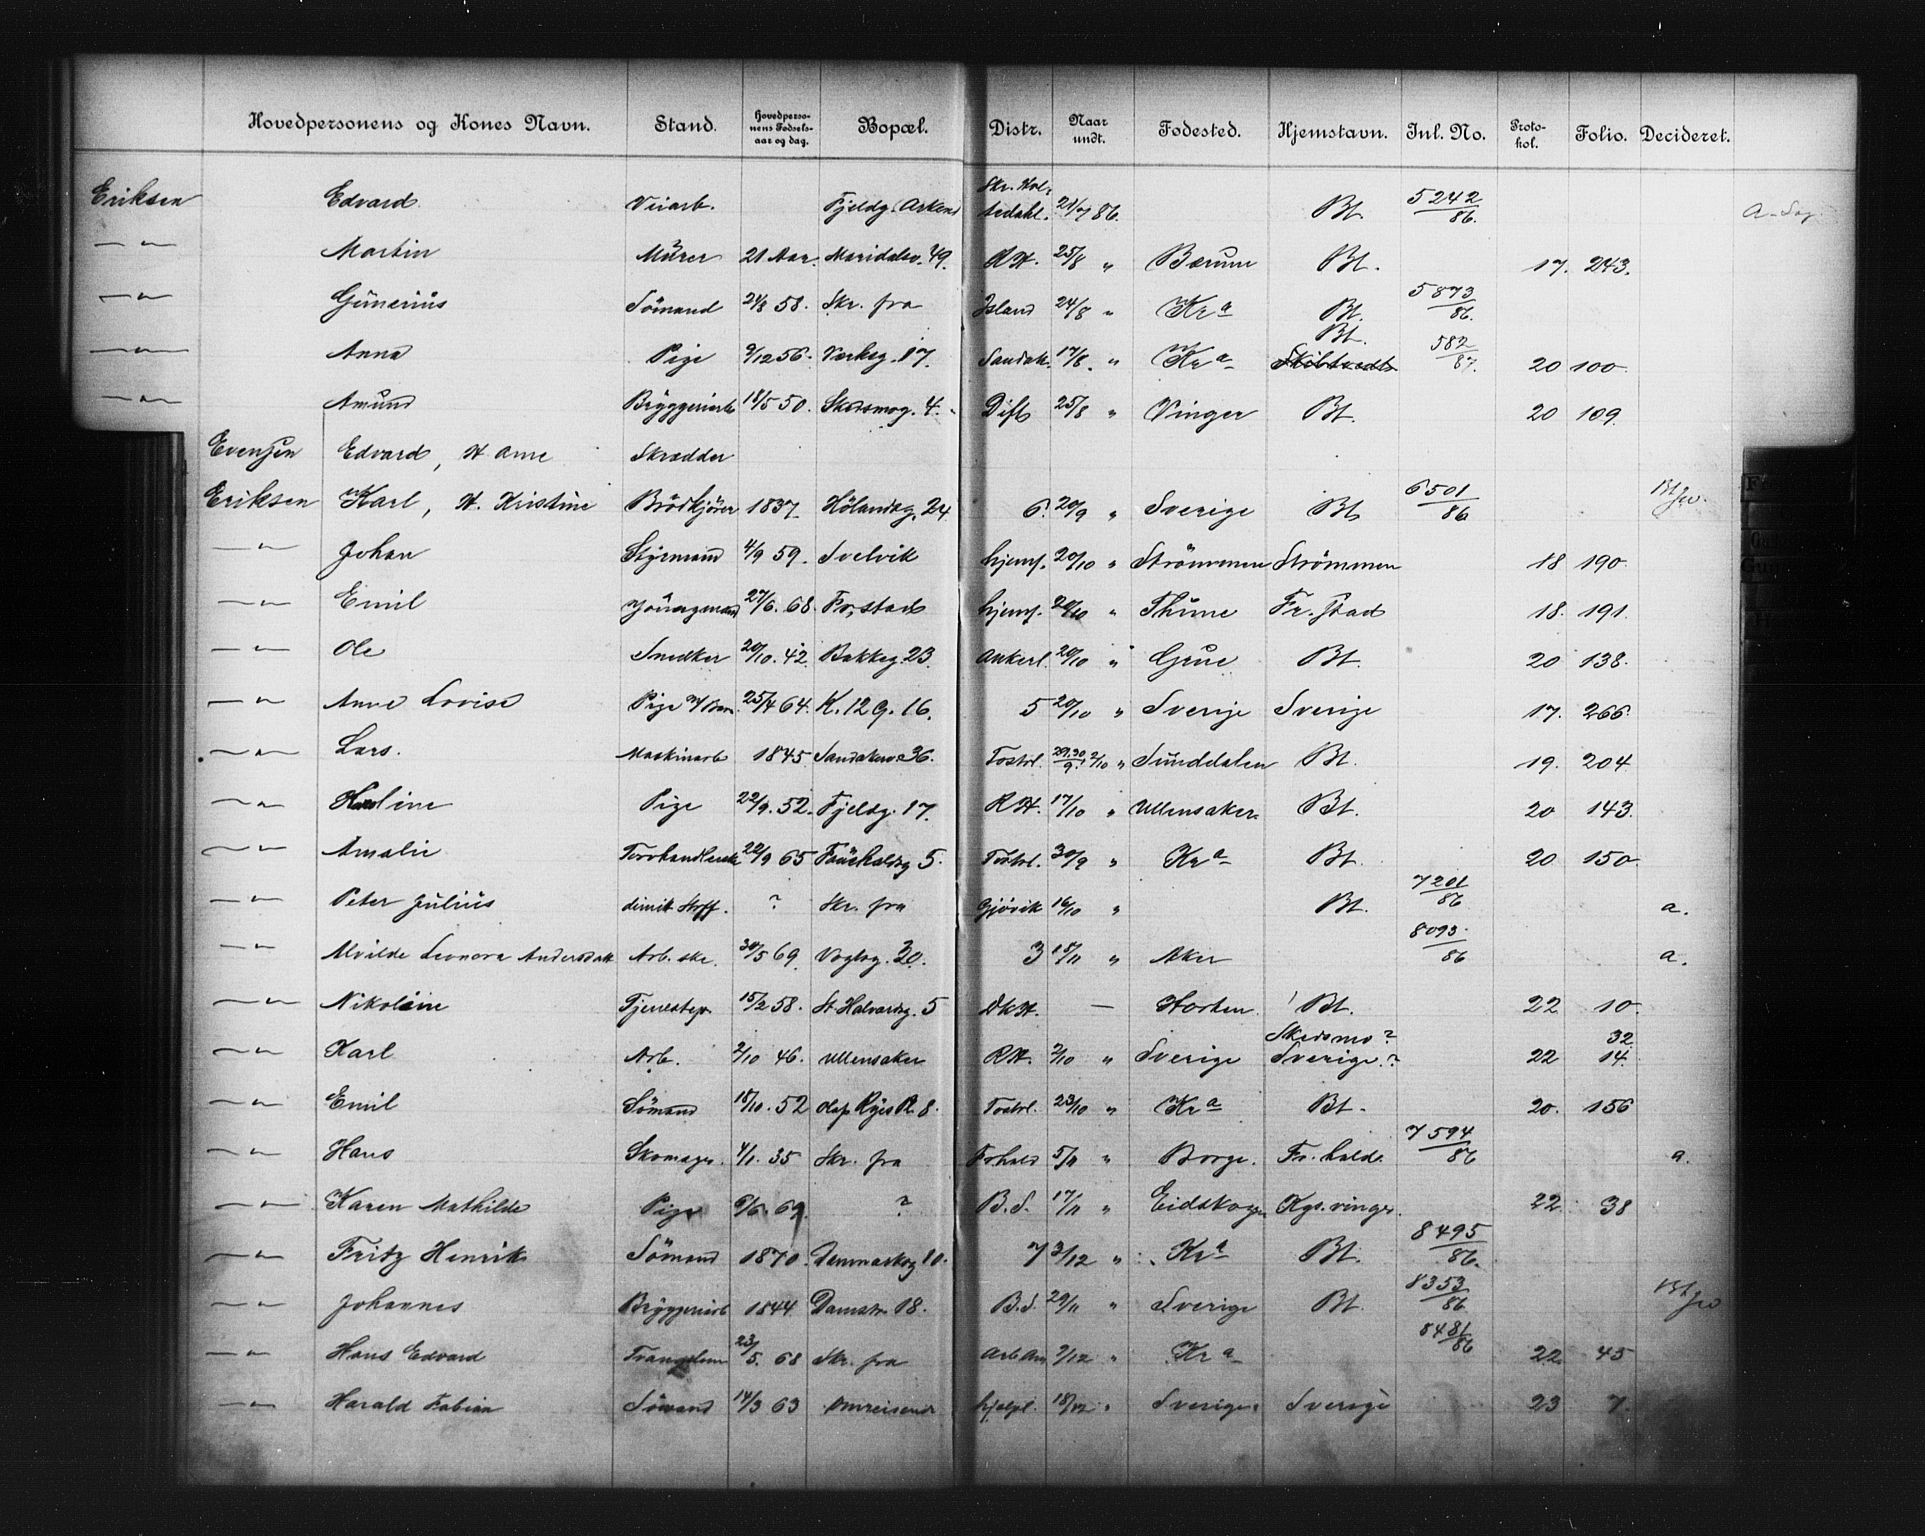 Hovedpersonens og Kones Navn. Stand. Hovedperso-nens Fødsels-aar og dag. Bopæl. Distr. Naar undt. Fødested. Hjemstavn. Jnl. No. Proto-kol. Folio. Decideret.
Eriksen Edvard Veiarb. Fjeldg. 21/7 86. Bt. 5242/86.
— " — Martin Mürer 21 Aar. Maridalsv. 49. RH. 25/8 " Bærum Bt. 17. 243.
— " — Gunerius Sömand 21/8 58. Skr. fra Island 24/8 " Kra Bt. 5873/86.
— " — Anna Pige 9/12 56. Værksg. 17. Sandak. 17/8 " Kra Bt. 582/87. 20 100.
— " — Amund Bryggeriarb 18/5 50. Skedsmog. 4. Dift 25/8 " Vinger Bt. 20 109.
Evensen Edvard, H. Ane Skrædder
Eriksen Karl, H. Kristine Brödkjörer 1837 Hölandsg. 24 6. 20/9 " Sverige Bt 6501/86
— " — Johan Styrmand 4/9 59. Svelvik hjemf. 20/10 " Strömmen Strömmen 18 190.
— " — Emil Jöungmand 27/6. 68. Fr.stad hjemf. 20/10 " Thüne Fr.stad 18. 191.
— " — Ole Snedker 20/10. 42. Bakkeg. 23. Ankerl. 20/10 " Grue Bt. 20 138.
— " — Anne Lovise Pige m/ Barn. 25/4 64. K. 12 g. 16. 5 20/10 " Sverige Sverige 17. 266.
— " — Lars. Maskinarb 1845 Sandakerv. 36. Tostrl. 29,30/9, 2/10 " Sunddalen Bt. 19. 204
— " — Haline Pige 22/9. 52. Fjeldg. 17. RH. 17/10 " Ullensaker. Bt. 20 143.
— " — Amalie Torvhandlerske 22/9 65 Fouskoldg 5. Tostrl. 30/9 " Kra Bt. 20 150.
— " — Peter Julius dimit Straff. ? Skr. fra Gjövik 16/10 " Bt. 7201/86 a.
— " — Alvilde Leonora Andersdatt Arb. ske. 30/5 69. Vogtsg. 30. 3 15/11 " Aker 8093/86 a.
— " — Nikoline Tjenestep. 15/2 58. St. Halvardsg. 5 DkH. — Horten Bt. 22 10.
— " — Karl Arb. 2/10 46. Ullensaker RH. 2/10 " Sverige Skedsmo? Sverige? 22 32 14.
— " — Emil Sömand 18/10. 52 Olaf Ryes Pl. 8. Tostrl. 23/10 " Kra Bt. 20. 156
— " — Hans Skomager. 4/1. 35 Skr. fra Frhald 5/11 " Borge. Fr.hald. 7594/86 a.
— " — Karen Mathilde Pige 9/6. 69. ? B.S. 17/11 " Eidskogen Kgs.vinger. 22. 38
— " — Fritz Henrik Sömand 1870. Danmarksg 10. 7 3/12 " Kra Bt. 8495/86.
— " — Johannes Bryggeriarb 1844. Damstr. 18. B.S. 29/11 " Sverige Bt. 8353/86
— " — Hans Edvard 23/5. 68 Skr. fra 9/12 " Kra 8481/86 22. 45
— " — Harald Fabian Sömand 14/3 63 Omreisende hjelpl. 18/12 " Sverige. Sverige 23 7.